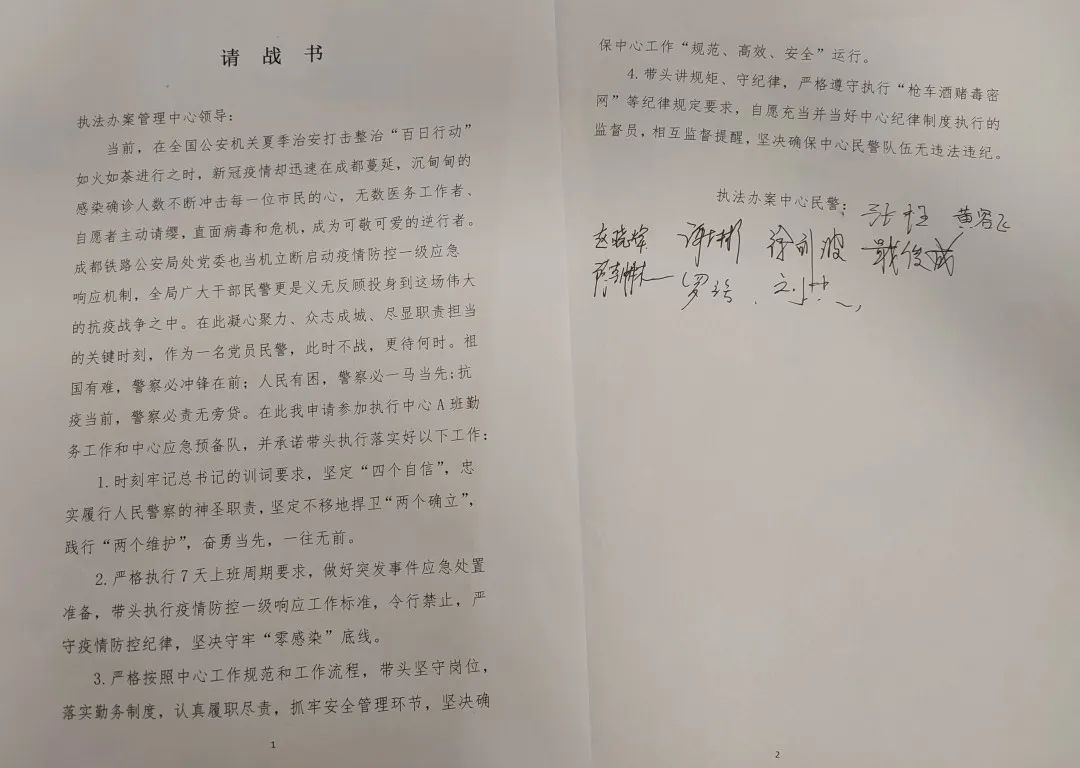 请 战 书
执法办案管理中心领导：
当前，在全国公安机关夏季治安打击整治“百日行动”
如火如荼进行之时，新冠疫情却迅速在成都蔓延，沉甸甸的
感染确诊人数不断冲击每一位市民的心，无数医务工作者、
自愿者主动请缨，直面病毒和危机，成为可敬可爱的逆行者。
成都铁路公安局处党委也当机立断启动疫情防控一级应急
响应机制，全局广大干部民警更是义无反顾投身到这场伟大
的抗疫战争之中。在此凝心聚力、众志成城、尽显职责担当
的关键时刻，作为一名党员民警，此时不战，更待何时。祖
国有难，警察必冲锋在前；人民有困，警察必一马当先;抗
疫当前，警察必责无旁贷。在此我申请参加执行中心 A 班勤
务工作和中心应急预备队，并承诺带头执行落实好以下工作：
1.时刻牢记总书记的训词要求，坚定“四个自信”，忠
实履行人民警察的神圣职责，坚定不移地捍卫“两个确立”，
践行“两个维护”，奋勇当先，一往无前。
2.严格执行 7 天上班周期要求，做好突发事件应急处置
准备，带头执行疫情防控一级响应工作标准，令行禁止，严
守疫情防控纪律，坚决守牢“零感染”底线。
3.严格按照中心工作规范和工作流程，带头坚守岗位，
落实勤务制度，认真履职尽责，抓牢安全管理环节，坚决确
1
保中心工作“规范、高效、安全”运行。
4.带头讲规矩、守纪律，严格遵守执行“枪车酒赌毒密
网”等纪律规定要求，自愿充当并当好中心纪律制度执行的
监督员，相互监督提醒，坚决确保中心民警队伍无违法违纪。
执法办案中心民警：
赵晓峰
戴俊成
2